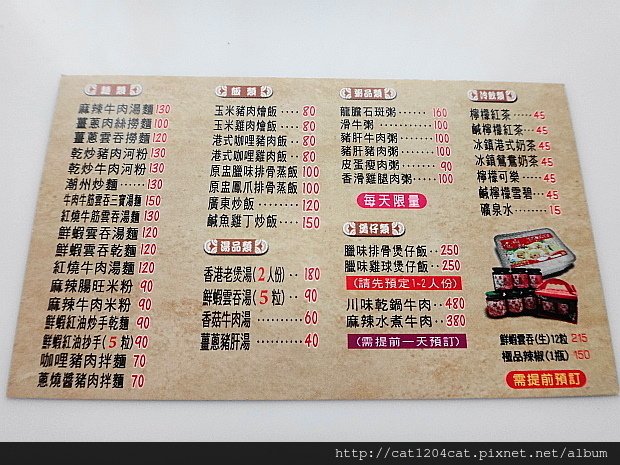 麵類
麻辣牛肉湯麵 130
薑蔥肉絲撈麵 100
薑蔥雲吞撈麵 120
乾炒豬肉河粉 130
乾炒牛肉河粉 130
潮州炒麵······ 130
牛肉牛筋雲吞三寶湯麵 150
紅燒牛筋雲吞湯麵 130
鮮蝦雲吞湯麵 120
鮮蝦雲吞乾麵 120
紅燒牛肉湯麵 120
麻辣腸旺米粉 90
麻辣牛肉米粉 90
鮮蝦紅油炒手乾麵 90
鮮蝦紅油炒手(5粒) 90
咖哩豬肉拌麵 70
蔥燒醬豬肉拌麵 70
飯類
玉米豬肉燴飯···· 80
玉米雞肉燴飯···· 80
港式咖哩豬肉飯·· 80
港式咖哩雞肉飯·· 80
原盅臘味排骨蒸飯 100
原盅鳳爪排骨蒸飯 100
廣東炒飯········ 120
鹹魚雞丁炒飯···· 150
湯品類
香港老煲湯(2人份)·· 180
鮮蝦雲吞湯(5粒)·· 90
香菇牛肉湯········ 60
薑蔥豬肝湯········ 40
粥品類
龍膽石斑粥······ 160
滑牛粥·········· 100
豬肝牛肉粥······ 100
豬肝豬肉粥······ 100
皮蛋瘦肉粥······ 90
香滑雞腿肉粥···· 100
每天限量
煲仔類
臘味排骨煲仔飯··250
臘味雞球煲仔飯··250
(請先預定1-2人份)
川味乾鍋牛肉··480
麻辣水煮牛肉··380
(需提前一天預訂)
冷飲類
檸檬紅茶···· 45
鹹檸檬紅茶·· 45
冰鎮港式奶茶 45
冰鎮鴛鴦奶茶 45
檸檬可樂···· 45
鹹檸檬雪碧·· 45
礦泉水······ 15
鮮蝦雲吞(生)12粒 215
極品辣椒(1瓶) 150
需提前預訂
http://cat1204cat.pixnet.net/album